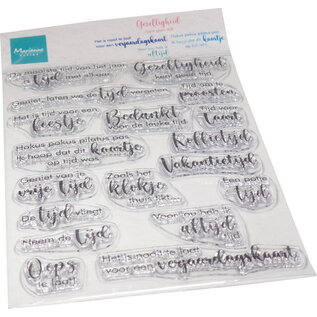 Marianne
Gezelligheid
Het is nooit te laat
voor een verjaardagskaart
altijd
Hokus pokus pilatus pas
ik hoop dat dit kaartje
op tijd was
De mooiste tijd van het jaar
tijd met elkaar
Gezelligheid
kent geen tijd
Geniet, laten we de tijd vergeten
Tijd om te
proosten
Tijd voor een
feestje
Bedankt
voor de leuke tijd
Tijd voor
taart
Hokus pokus pilatus pas
ik hoop dat dit kaartje
op tijd was
Koffietijd
Vakantietijd
Geniet van je
vrije tijd
Zoals het
klokje
thuis tikt...
Een potje
tijd
De tijd vliegt
Neem de tijd
Voor jou heb ik
altijd
tijd
Oeps
te laat!
Het is nooit te laat
voor een verjaardagskaart